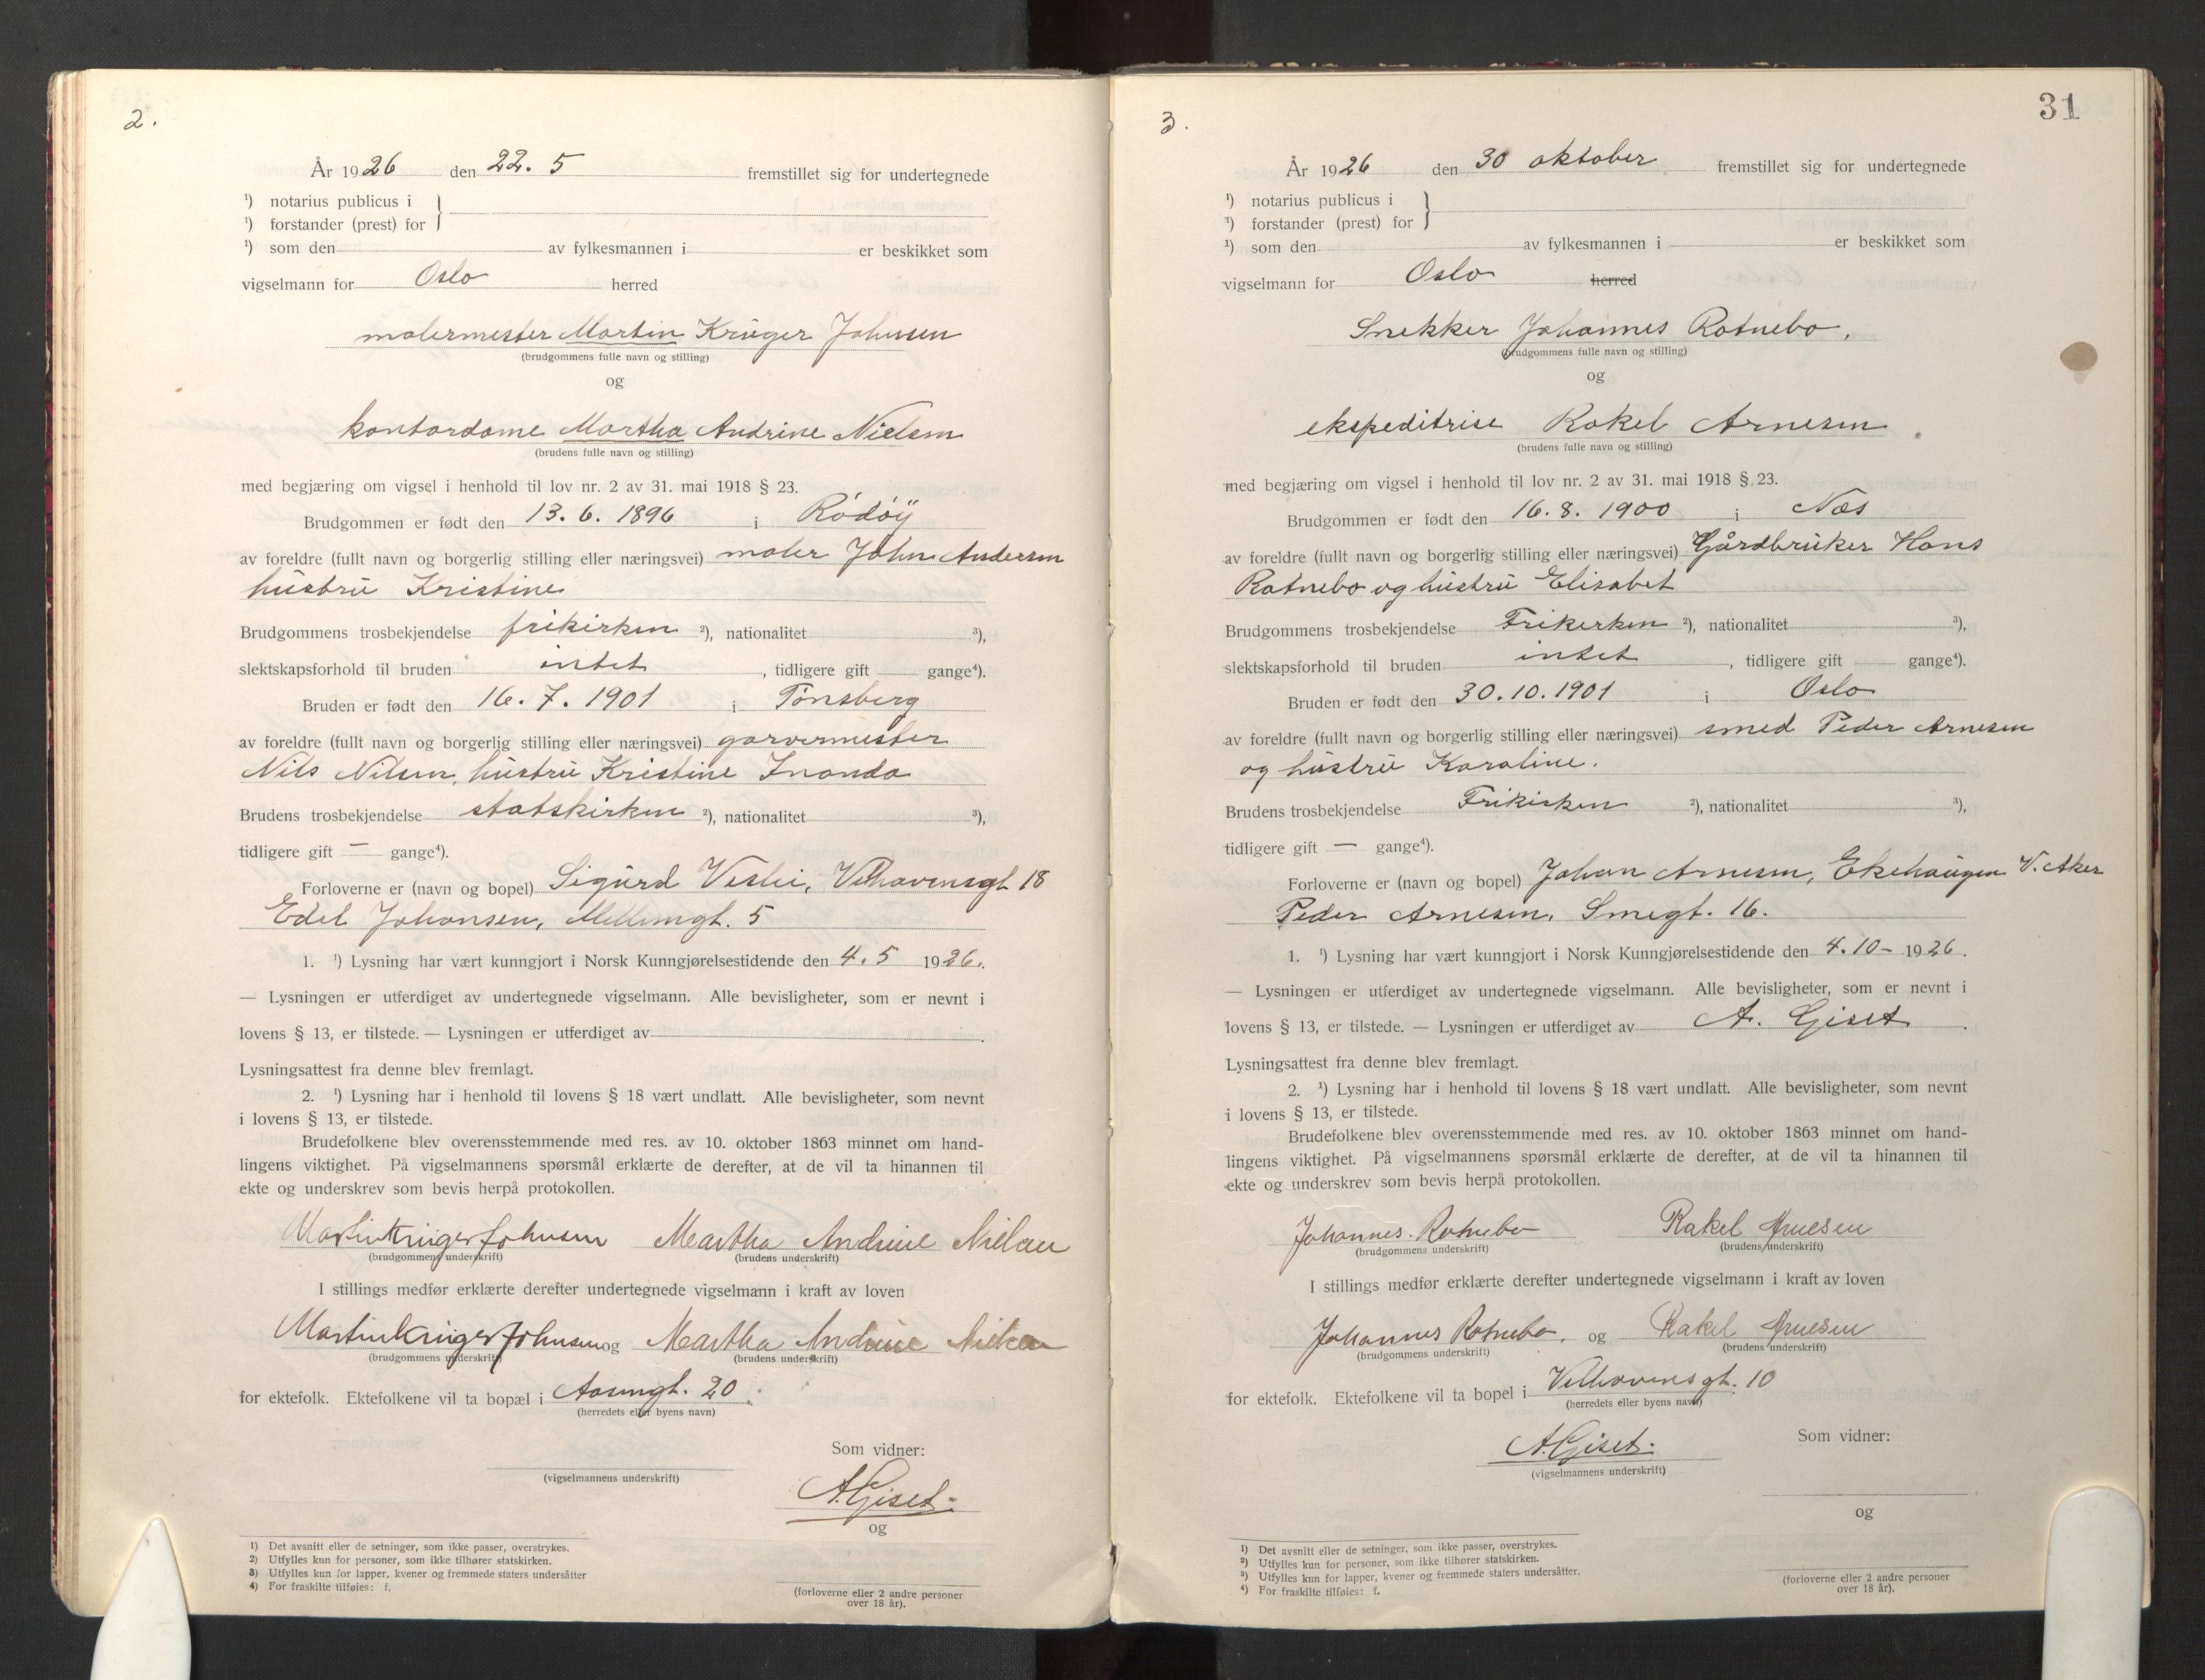 2.
År 1926 den 22. 5 fremstillet sig for undertegnede
¹) notarius publicus i
¹) forstander (prest) for
¹) som den av fylkesmannen i er beskikket som
vigselmann for Oslo herred
malermester Martin Krüger Johnsen
(brudgommens fulle navn og stilling)
og
kontordame Martha Andrine Nielsen
(brudens fulle navn og stilling)
med begjæring om vigsel i henhold til lov nr. 2 av 31. mai 1918 § 23.
Brudgommen er født den 13. 6. 1896 i Rödöy
av foreldre (fullt navn og borgerlig stilling eller næringsvei) maler John Andersen
hustru Kristine
Brudgommens trosbekjendelse frikirken ²), nationalitet ³),
slektskapsforhold til bruden intet , tidligere gift gange⁴).
Bruden er født den 16. 7. 1901 i Tönsberg
av foreldre (fullt navn og borgerlig stilling eller næringsvei) garvermester
Nils Nilsen, hustru Kristine
Brudens trosbekjendelse statskirken ²), nationalitet ³),
tidligere gift — gange⁴).
Forloverne er (navn og bopel) Sigurd 18
Edel Johansen, 5
1. ¹) Lysning har vært kunngjort i Norsk Kunngjørelsestidende den 4. 5 1926.
— Lysningen er utferdiget av undertegnede vigselmann. Alle bevisligheter, som er nevnt i
lovens § 13, er tilstede. — Lysningen er utferdiget av .
Lysningsattest fra denne blev fremlagt.
2. ¹) Lysning har i henhold til lovens § 18 vært undlatt. Alle bevisligheter, som nevnt
i lovens § 13, er tilstede.
Brudefolkene blev overensstemmende med res. av 10. oktober 1863 minnet om hand-
lingens viktighet. På vigselmannens spørsmål erklærte de derefter, at de vil ta hinannen til
ekte og underskrev som bevis herpå protokollen.
Martin Krüger Johnsen Martha Andrine Nielsen
(brudgommens underskrift) (brudens underskrift)
I stillings medfør erklærte derefter undertegnede vigselmann i kraft av loven
Martin Krüger Johnsen og Martha Andrine Nielsen
(brudgommens underskrift) (brudens underskrift)
for ektefolk. Ektefolkene vil ta bopæl i Aasengt. 20.
(herredets eller byens navn)
Som vidner:
(vigselmannens underskrift)
A. Giset
og
1) Det avsnitt eller de setninger, som ikke passer, overstrykes.
2) Utfylles kun for personer, som ikke tilhører statskirken.
3) Utfylles kun for lapper, kvener og fremmede staters undersåtter
4) For fraskilte tilføies: f.
(forloverne eller 2 andre personer
over 18 år).
3.
31
År 1926 den 30 oktober fremstillet sig for undertegnede
¹) notarius publicus i
¹) forstander (prest) for
¹) som den av fylkesmannen i er beskikket som
vigselmann for Oslo herred
Snekker Johannes Rotnebo.
(brudgommens fulle navn og stilling)
og
ekspeditrise Rakel Arnesen.
(brudens fulle navn og stilling)
med begjæring om vigsel i henhold til lov nr. 2 av 31. mai 1918 § 23.
Brudgommen er født den 16. 8. 1900 i Næs
av foreldre (fullt navn og borgerlig stilling eller næringsvei) Gårdbruker Hans
Rotnebo og hustru Elisabet
Brudgommens trosbekjendelse Frikirken ²), nationalitet ³),
slektskapsforhold til bruden intet , tidligere gift gange⁴).
Bruden er født den 30. 10. 1901 i Oslo
av foreldre (fullt navn og borgerlig stilling eller næringsvei) smed Peder Arnesen
og hustru Karoline.
Brudens trosbekjendelse Frikirken ²), nationalitet ³),
tidligere gift — gange⁴).
Forloverne er (navn og bopel) Johan Arnesen, Ekehaugen V. Aker
Peder Arnesen, Smegt. 16.
1. ¹) Lysning har vært kunngjort i Norsk Kunngjørelsestidende den 4. 10 – 1926.
— Lysningen er utferdiget av undertegnede vigselmann. Alle bevisligheter, som er nevnt i
lovens § 13, er tilstede. — Lysningen er utferdiget av A. Giset .
Lysningsattest fra denne blev fremlagt.
2. ¹) Lysning har i henhold til lovens § 18 vært undlatt. Alle bevisligheter, som nevnt
i lovens § 13, er tilstede.
Brudefolkene blev overensstemmende med res. av 10. oktober 1863 minnet om hand-
lingens viktighet. På vigselmannens spørsmål erklærte de derefter, at de vil ta hinannen til
ekte og underskrev som bevis herpå protokollen.
Johannes Rotnebo Rakel Arnesen
(brudgommens underskrift) (brudens underskrift)
I stillings medfør erklærte derefter undertegnede vigselmann i kraft av loven
Johannes Rotnebo. og Rakel Arnesen
(brudgommens underskrift) (brudens underskrift)
for ektefolk. Ektefolkene vil ta bopel i Velhavensgt. 10
(herredets eller byens navn)
A. Giset
Som vidner:
(vigselmannens underskrift)
og
1) Det avsnitt eller de setninger, som ikke passer, overstrykes.
2) Utfylles kun for personer, som ikke tilhører statskirken.
3) Utfylles kun for lapper, kvener og fremmede staters undersåtter.
4) For fraskilte tilføies: f.
(forloverne eller 2 andre personer
over 18 år).